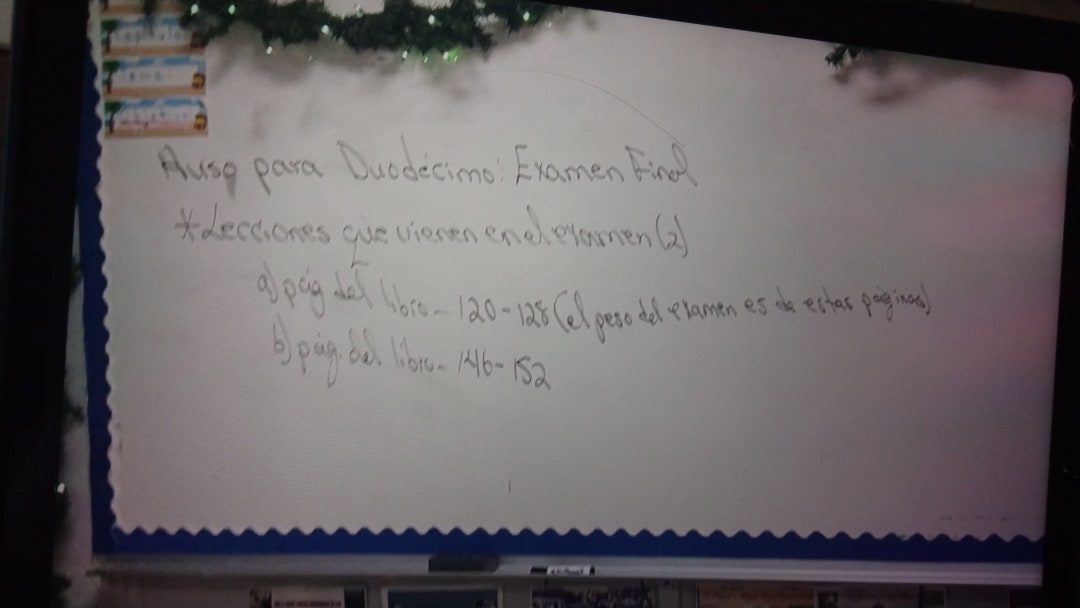 Capítulo:
Tema:
Objetivo:
Aviso para Duodécimo: Examen Final
*Lecciones que vienen en el examen (2)
a) pág del libro - 120 - 128 (el peso del examen es de estas páginas)
b) pág. del libro - 146 - 152